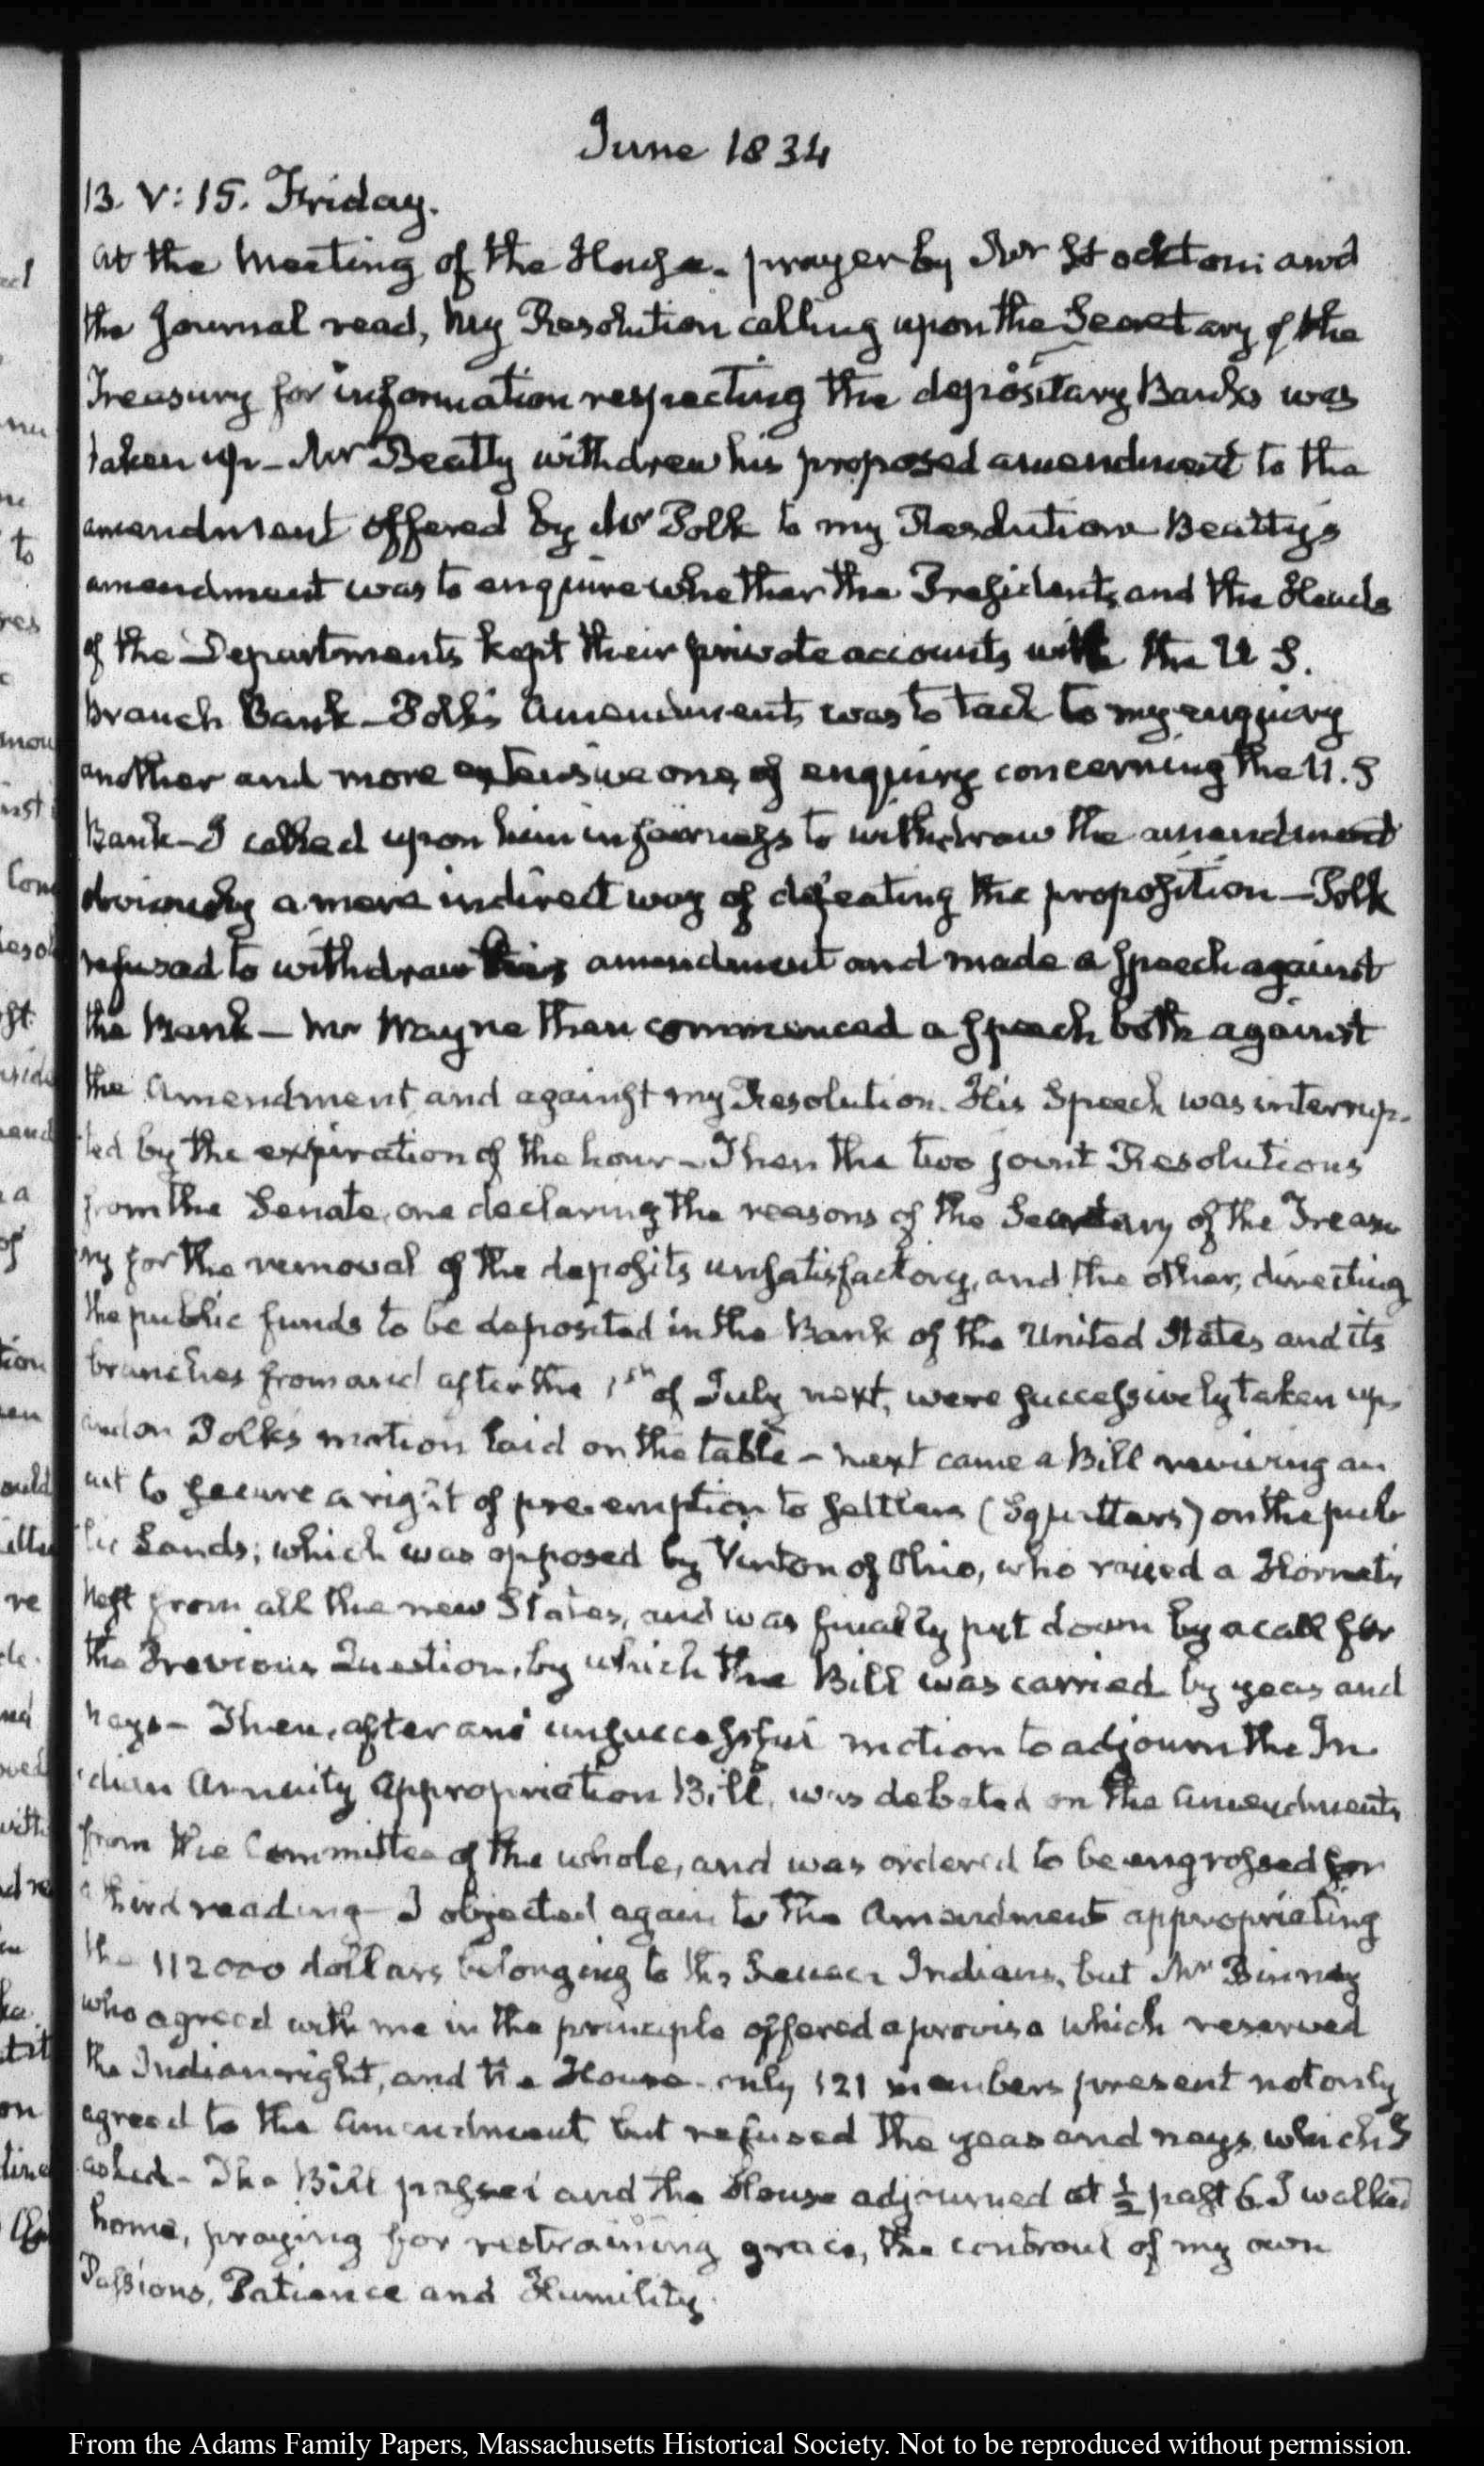 June 1834
13. V: 15. Friday.
At the Meeting of the House. prayer by Mr Stockton and
the Journal read, my Resolution calling upon the Secretary of the
Treasury for information respecting the depositary Banks was
taken up — Mr Beatty withdrew his proposed amendment to the
amendment offered by Mr Polk to my Resolution Beatty's
amendment was to enquire whether the Presidents and the Heads
of the Departments kept their private accounts with the U S.
branch Bank — Polk's Amendment was to tack to my enquiry
another and more extensive one, of enquiry concerning the U. S
Bank — I called upon him in fairness to withdraw the amendment
obviously a mere indirect way of defeating the proposition — Polk
refused to withdraw his amendment and made a speech against
the Bank — Mr Wayne then commenced a speech both against
the Amendment and against my Resolution. His Speech was interrup-
ted by the expiration of the hour — Then the two joint Resolutions
from the Senate, one declaring the reasons of the Secretary of the Treasu
ry for the removal of the deposits unsatisfactory, and the other, directing
the public funds to be deposited in the Bank of the United States and its
branches from and after the 1st of July next, were successively taken up
and on Polk's motion laid on the table — next came a Bill reviving an
act to secure a right of pre-emption to settlers (Squatters) on the pub
lic Lands; which was opposed by Vinton of Ohio, who raised a Hornet's
nest from all the new States, and was finally put down by a call for
the Previous Question, by which the Bill was carried by yeas and
nays — Then, after an unsuccessful motion to adjourn the In
dian Annuity Appropriation Bill, was debated on the Amendments
from the Committee of the whole, and was ordered to be engrossed for
a third reading — I objected again to the Amendment appropriating
the 112000 dollars belonging to the Seneca Indians, but Mr Binney
who agreed with me in the principle offered a proviso which reserved
the Indian right, and the House — only 121 members present not only
agreed to the Amendment but refused the yeas and nays which I
asked — The Bill passed and the House adjourned at ½ past 6. I walked
home, praying for restraining grace, the controul of my own
Passions, Patience and Humility.
From the Adams Family Papers, Massachusetts Historical Society. Not to be reproduced without permission.